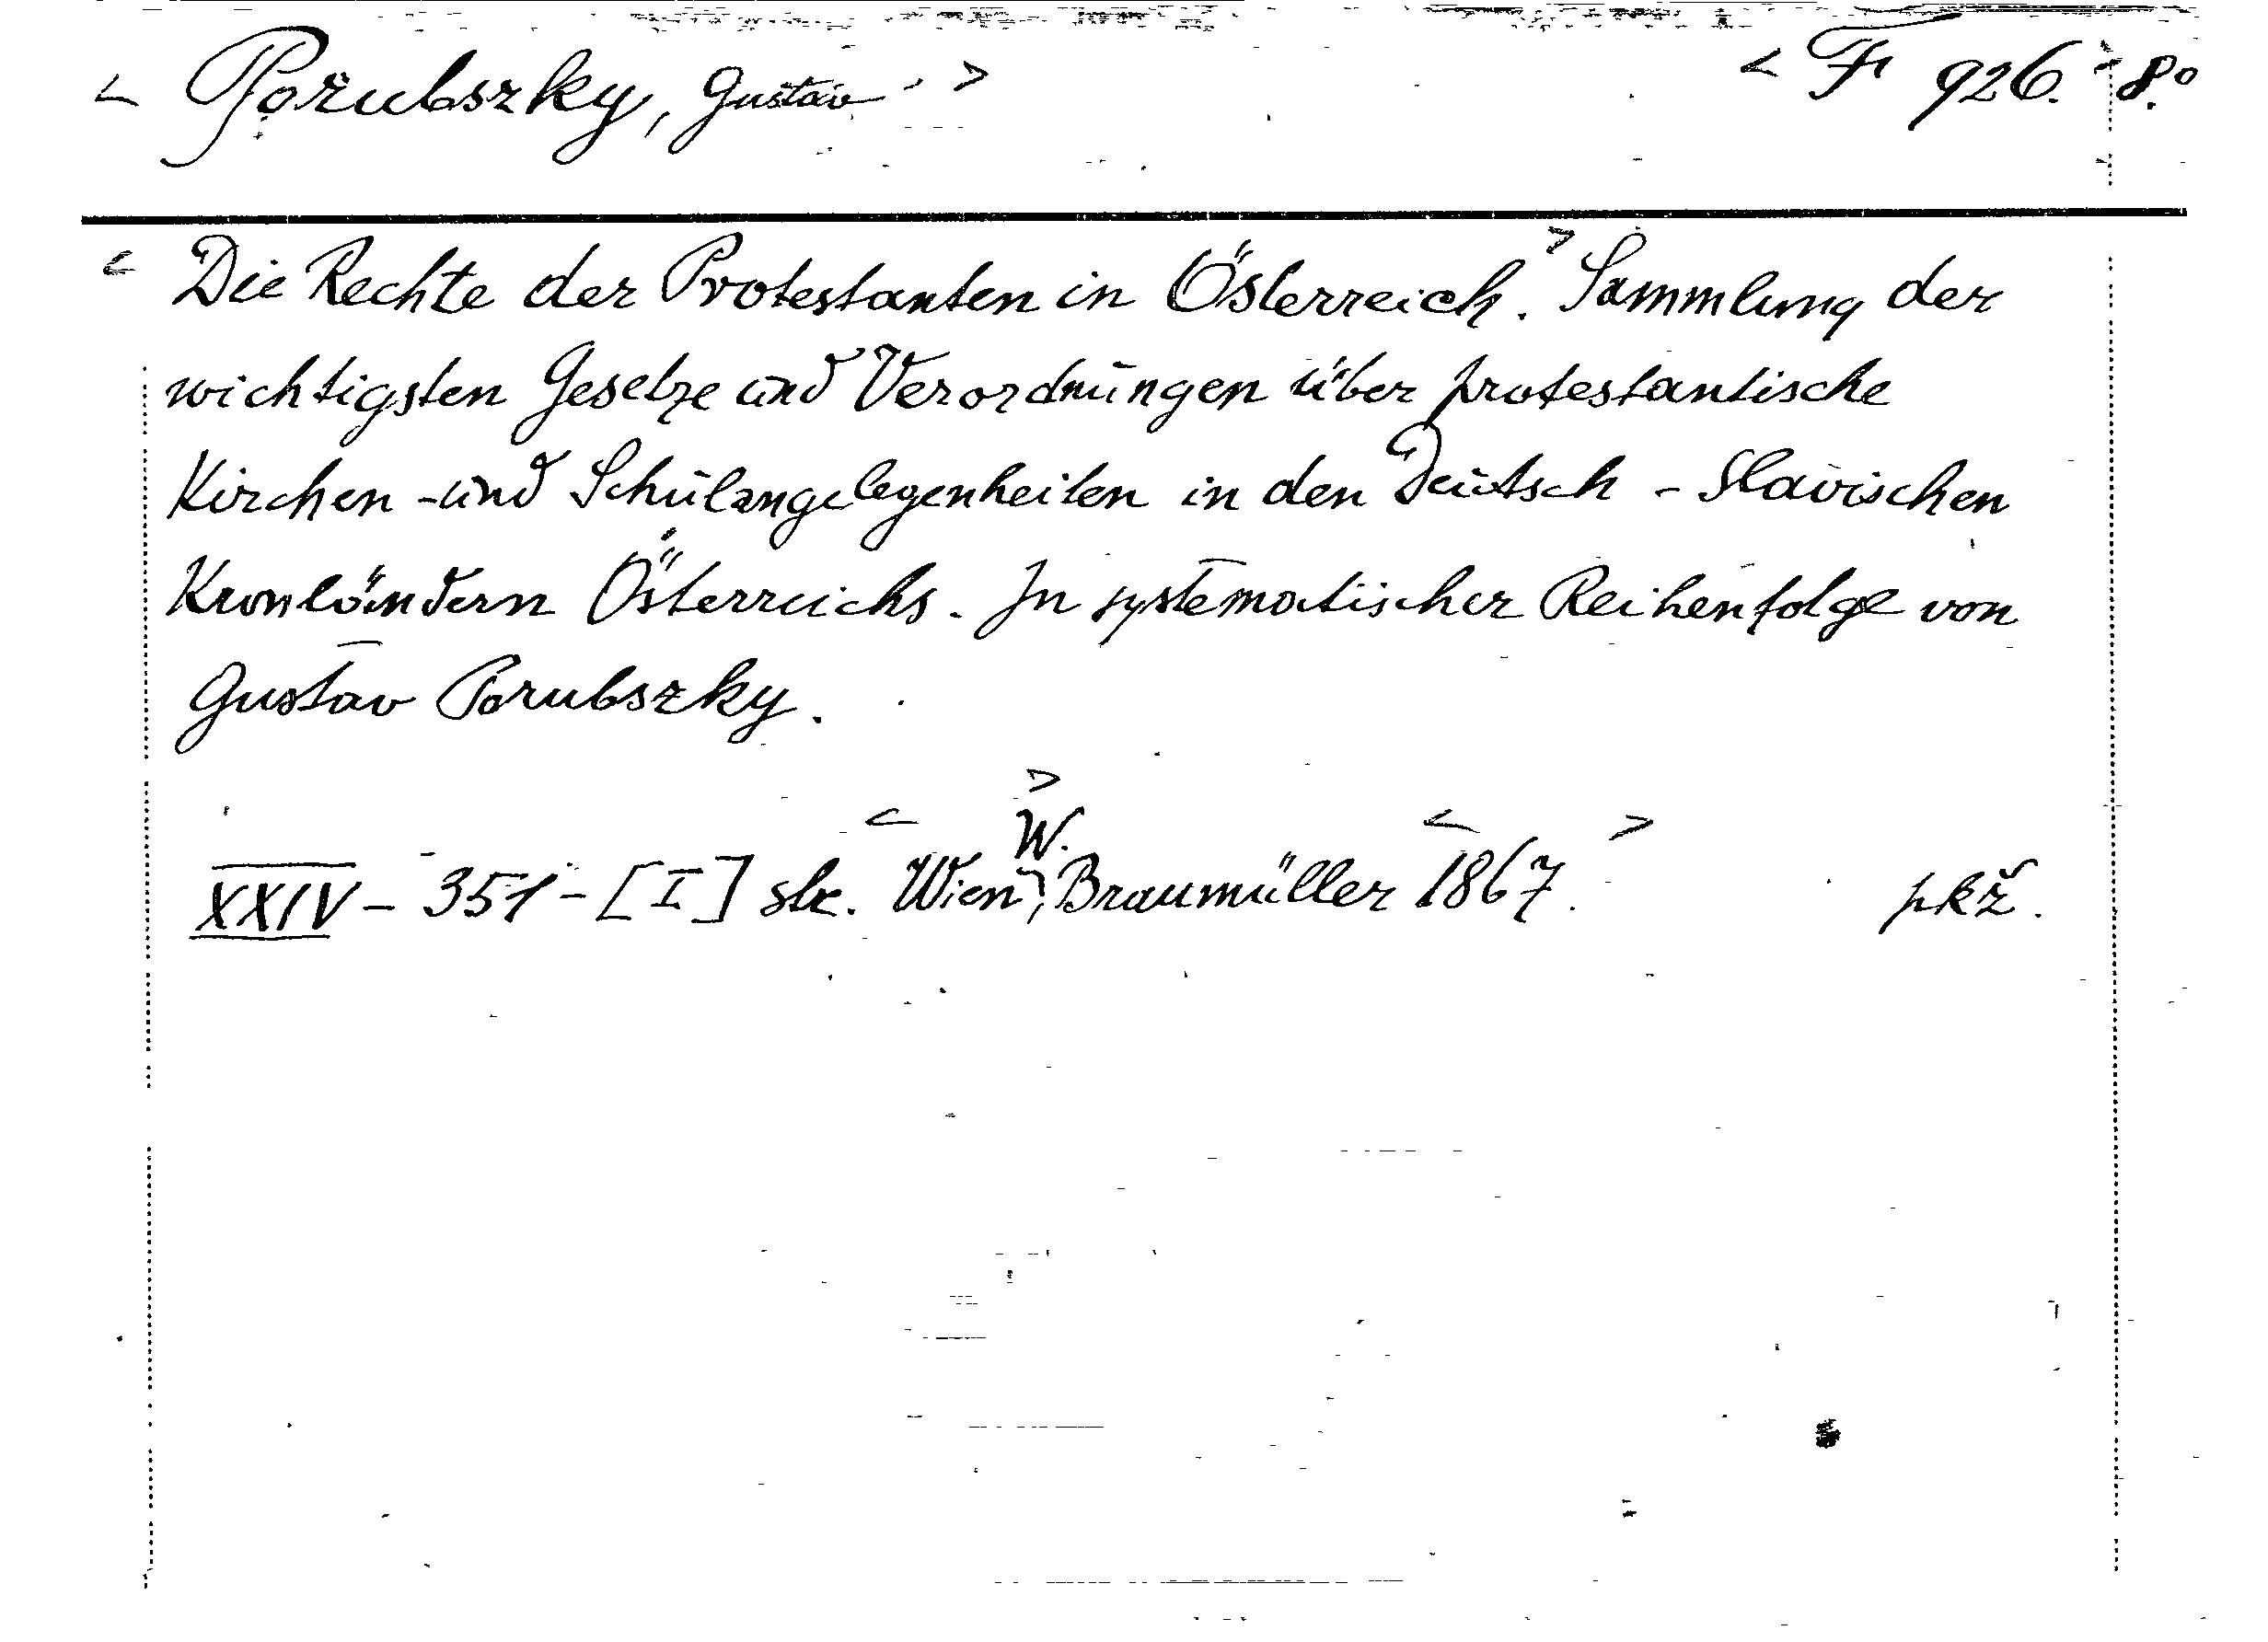 < Porubszky, Gustav > < F 926. 8.º
< Die Rechte der Protestanten in Österreich. > Sammlung der
wichtigsten Gesetze und Verordnungen über protestantische
Kirchen - und Schulangelegenheiten in den Deutsch - Slavischen
Kronländern Österreichs. In systematischer Reihenfolge von
Gustav Porubszky.
XXIV - 351 - [I] str. < Wien >, W. Braumüller < 1867. > pkž.